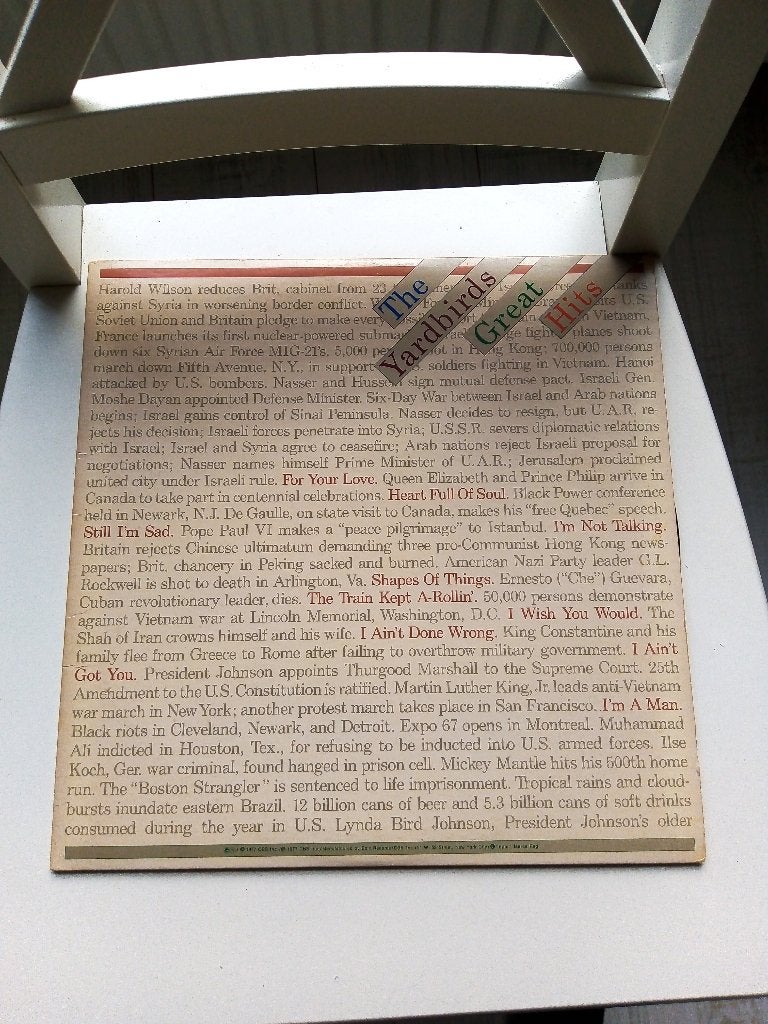 The
Yardbirds
Great
Hits
Harold Wilson reduces Brit. cabinet from 23
against Syria in worsening border conflict. U.S.
Soviet Union and Britain pledge to make every Vietnam.
France launches its first nuclear-powered planes shoot
down six Syrian Air Force MIG-21's. 5,000 Kong; 700,000 persons
march down Fifth Avenue, N.Y., in support soldiers fighting in Vietnam. Hanoi
attacked by U.S. bombers. Nasser and Hussein sign mutual defense pact. Israeli Gen.
Moshe Dayan appointed Defense Minister. Six-Day War between Israel and Arab nations
begins; Israel gains control of Sinai Peninsula. Nasser decides to resign, but U.A.R. re-
jects his decision; Israeli forces penetrate into Syria; U.S.S.R. severs diplomatic relations
with Israel; Israel and Syria agree to ceasefire; Arab nations reject Israeli proposal for
negotiations; Nasser names himself Prime Minister of U.A.R.; Jerusalem proclaimed
united city under Israeli rule. For Your Love. Queen Elizabeth and Prince Philip arrive in
Canada to take part in centennial celebrations. Heart Full Of Soul. Black Power conference
held in Newark, N.J. De Gaulle, on state visit to Canada, makes his "free Quebec" speech.
Still I'm Sad. Pope Paul VI makes a "peace pilgrimage" to Istanbul. I'm Not Talking.
Britain rejects Chinese ultimatum demanding three pro-Communist Hong Kong news-
papers; Brit. chancery in Peking sacked and burned. American Nazi Party leader G.L.
Rockwell is shot to death in Arlington, Va. Shapes Of Things. Ernesto ("Che") Guevara,
Cuban revolutionary leader, dies. The Train Kept A-Rollin'. 50,000 persons demonstrate
against Vietnam war at Lincoln Memorial, Washington, D.C. I Wish You Would. The
Shah of Iran crowns himself and his wife. I Ain't Done Wrong. King Constantine and his
family flee from Greece to Rome after failing to overthrow military government. I Ain't
Got You. President Johnson appoints Thurgood Marshall to the Supreme Court. 25th
Amendment to the U.S. Constitution is ratified. Martin Luther King, Jr. leads anti-Vietnam
war march in New York; another protest march takes place in San Francisco. I'm A Man.
Black riots in Cleveland, Newark, and Detroit. Expo 67 opens in Montreal. Muhammad
Ali indicted in Houston, Tex., for refusing to be inducted into U.S. armed forces. Ilse
Koch, Ger. war criminal, found hanged in prison cell. Mickey Mantle hits his 500th home
run. The "Boston Strangler" is sentenced to life imprisonment. Tropical rains and cloud-
bursts inundate eastern Brazil. 12 billion cans of beer and 5.3 billion cans of soft drinks
consumed during the year in U.S. Lynda Bird Johnson, President Johnson's older